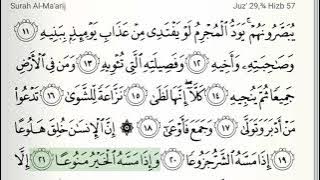 Surah Al-Ma'arij Juz' 29, ¾ Hizb 57
يُبَصَّرُونَهُمْ ۚ يَوَدُّ الْمُجْرِمُ لَوْ يَفْتَدِى مِنْ عَذَابِ يَوْمِئِذٍۭ بِبَنِيهِ ١١
وَصَٰحِبَتِهِۦ وَأَخِيهِ ١٢ وَفَصِيلَتِهِ الَّتِى تُـْٔوِيهِ ١٣ وَمَن فِى الْأَرْضِ
جَمِيعًا ثُمَّ يُنجِيهِ ١٤ كَلَّآ ۖ إِنَّهَا لَظَىٰ ١٥ نَزَّاعَةً لِّلشَّوَىٰ ١٦ تَدْعُوا۟
مَنْ أَدْبَرَ وَتَوَلَّىٰ ١٧ وَجَمَعَ فَأَوْعَىٰٓ ١٨ ۞ إِنَّ الْإِنسَٰنَ خُلِقَ هَلُوعًا
١٩ إِذَا مَسَّهُ الشَّرُّ جَزُوعًا ٢٠ وَإِذَا مَسَّهُ الْخَيْرُ مَنُوعًا ٢١ إِلَّا